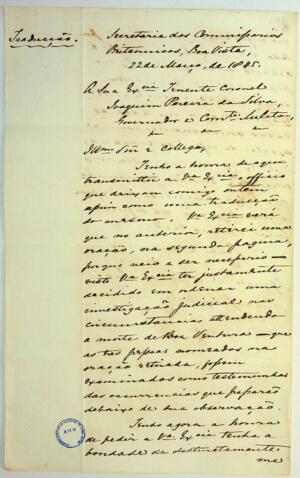 Traducção.
Secretaria dos Commissarios
Britannicos, Boa Vista,
22 de Março, de 1845.
A Sua Excia Tenente Coronel
Joaquim Pereira da Silva,
Governador e
Illmo Snr e Collega,
Tenho a honra de aqui
transmittir a Va Excia, o officio
que deixou comigo ontem
assim como uma traducção
do mesmo. Va Excia verá
que no anterior, retirei uma
oração, na segunda pagina,
porque veio a ser necessario
visto Va Excia ter justamente
decidido em ordenar uma
investigação judicial nas
circumstancias attendendo
a morte de Boa Ventura — que
as tres pessoas nomeados na
oração retirada, fossem
examinados como testemunhas
das occurrencias que passarão
debaixo de sua observação.
Tendo agora a honra
de pedir a Va Excia tenha a
bondade de destinctamente
me